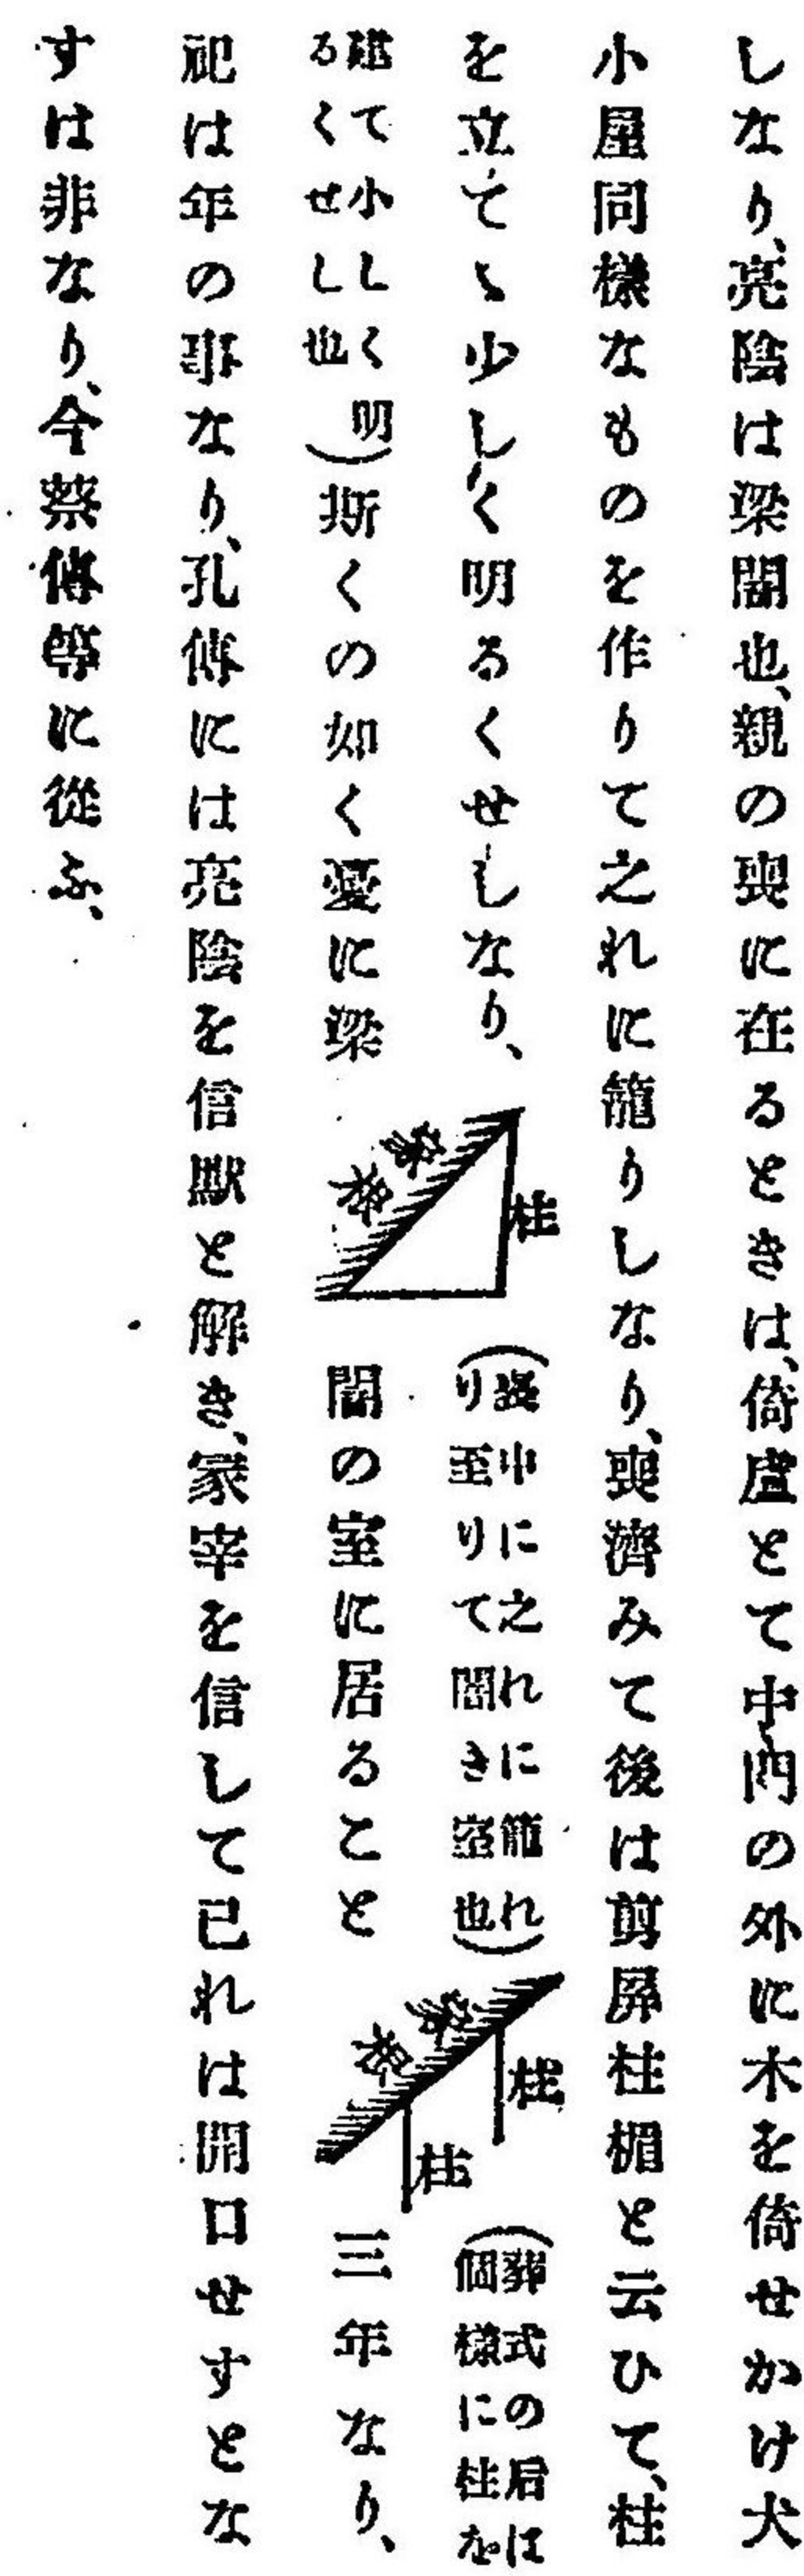 しなり、亮陰は梁闇也、親の喪に在るときは、倚廬とて中門の外に木を倚せかけ犬
小屋同様なものを作りて之れに籠りしなり、喪濟みて後は剪屏柱楣と云ひて、柱
を立てゝ少しく明るくせしなり、
柱
梁
(喪中に之れに籠れ
り至りて闇き室也)
柱
柱
(葬式の后は
個様に柱を
建て小しく明
るくせし也)
斯くの如く憂に梁
闇の室に居ること
三年なり、
祀は年の事なり、孔傳には亮陰を信默と解き、冢宰を信して已れは開口せすとな
すは非なり、今蔡傳等に從ふ、